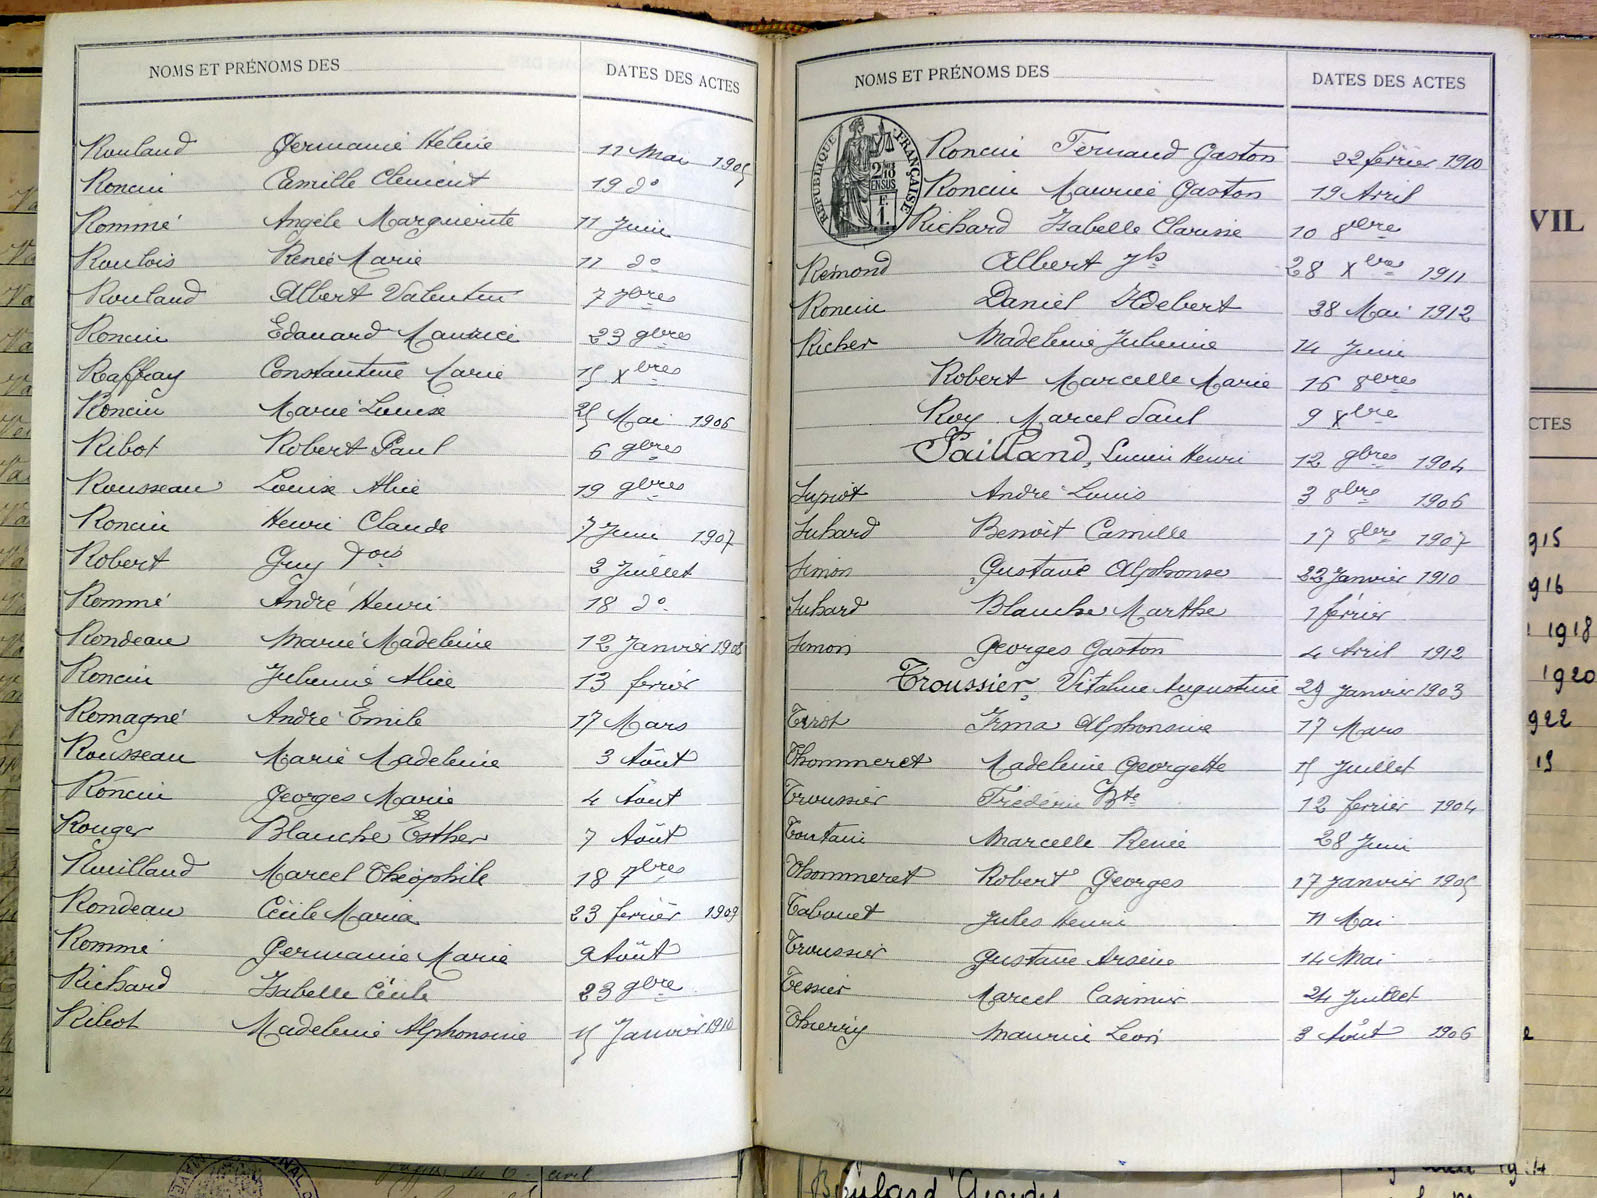 NOMS ET PRÉNOMS DES DATES DES ACTES
Rouland Germaine Hélène 11 Mai 1905
Roncin Camille Clément 19 do
Rommé Angèle Marguerite 11 Juin
Roulois Renée Marie 11 do
Rouland Albert Valentin 7 7bres
Roncin Edouard Maurice 23 9bres
Raffray Constantine Marie 15 Xbres
Roncin Marie Louise 25 Mai 1906
Ribot Robert Paul 6 9bres
Rousseau Louise Alice 19 9bres
Roncin Henri Claude 7 Juin 1907
Robert Guy Fois 2 Juillet
Rommé André Henri 18 do
Rondeau Marie Madeleine 12 Janvier 1908
Roncin Julienne Alice 13 ferier
Romagné André Emile 17 Mars
Rousseau Marie Madeleine 3 Août
Roncin Georges Marie 4 Août
Rouger Blanche Esther 7 Août
Ruilland Marcel Théophile 18 7bres
Rondeau Cécile Maria 23 ferier 1909
Rommé Germaine Marie 9 Août
Richard Isabelle Cécile 23 9bre
Ribot Madeleine Alphonsine 15 Janvier 1910
NOMS ET PRÉNOMS DES DATES DES ACTES
RÉPUBLIQUE FRANÇAISE
Roncin Fernand Gaston 22 férier 1910
Roncin Maurice Gaston 19 Avril
Richard Isabelle Clarisse 10 8bre
Rémond Albert 28 Xbres 1911
Roncin Daniel Hdebert 28 Mai 1912
Richer Madeleine Julienne 14 Juin
Robert Marcelle Marie 16 8bres
Roy Marcel Paul 9 Xbre
Sailland, Lucien Henri 12 9bres 1904
Supiot André Louis 3 8bre 1906
Suhard Benoit Camille 17 8bre 1907
Simon Gustave Alphonse 22 Janvier 1910
Suhard Blanche Marthe 1 férier
Simon Georges Gaston 4 Avril 1912
Troussier, Vitaline Augustine 29 Janvier 1903
Tirot Irma Alphonsine 17 Mars
Thommeret Madeleine Georgette 15 Juillet
Troussier Frédéric Bte 12 ferier 1904
Toutain Marcelle Renée 28 Juin
Thommeret Robert Georges 17 Janvier 1905
Tabouet Jules Henri 11 Mai
Troussier Gustave Arsène 14 Mai
Tessier Marcel Casimir 24 Juillet
Thierry Maurice Léon 3 Août 1906
VIL
CTES
915
916
1918
1920
922
19
avril